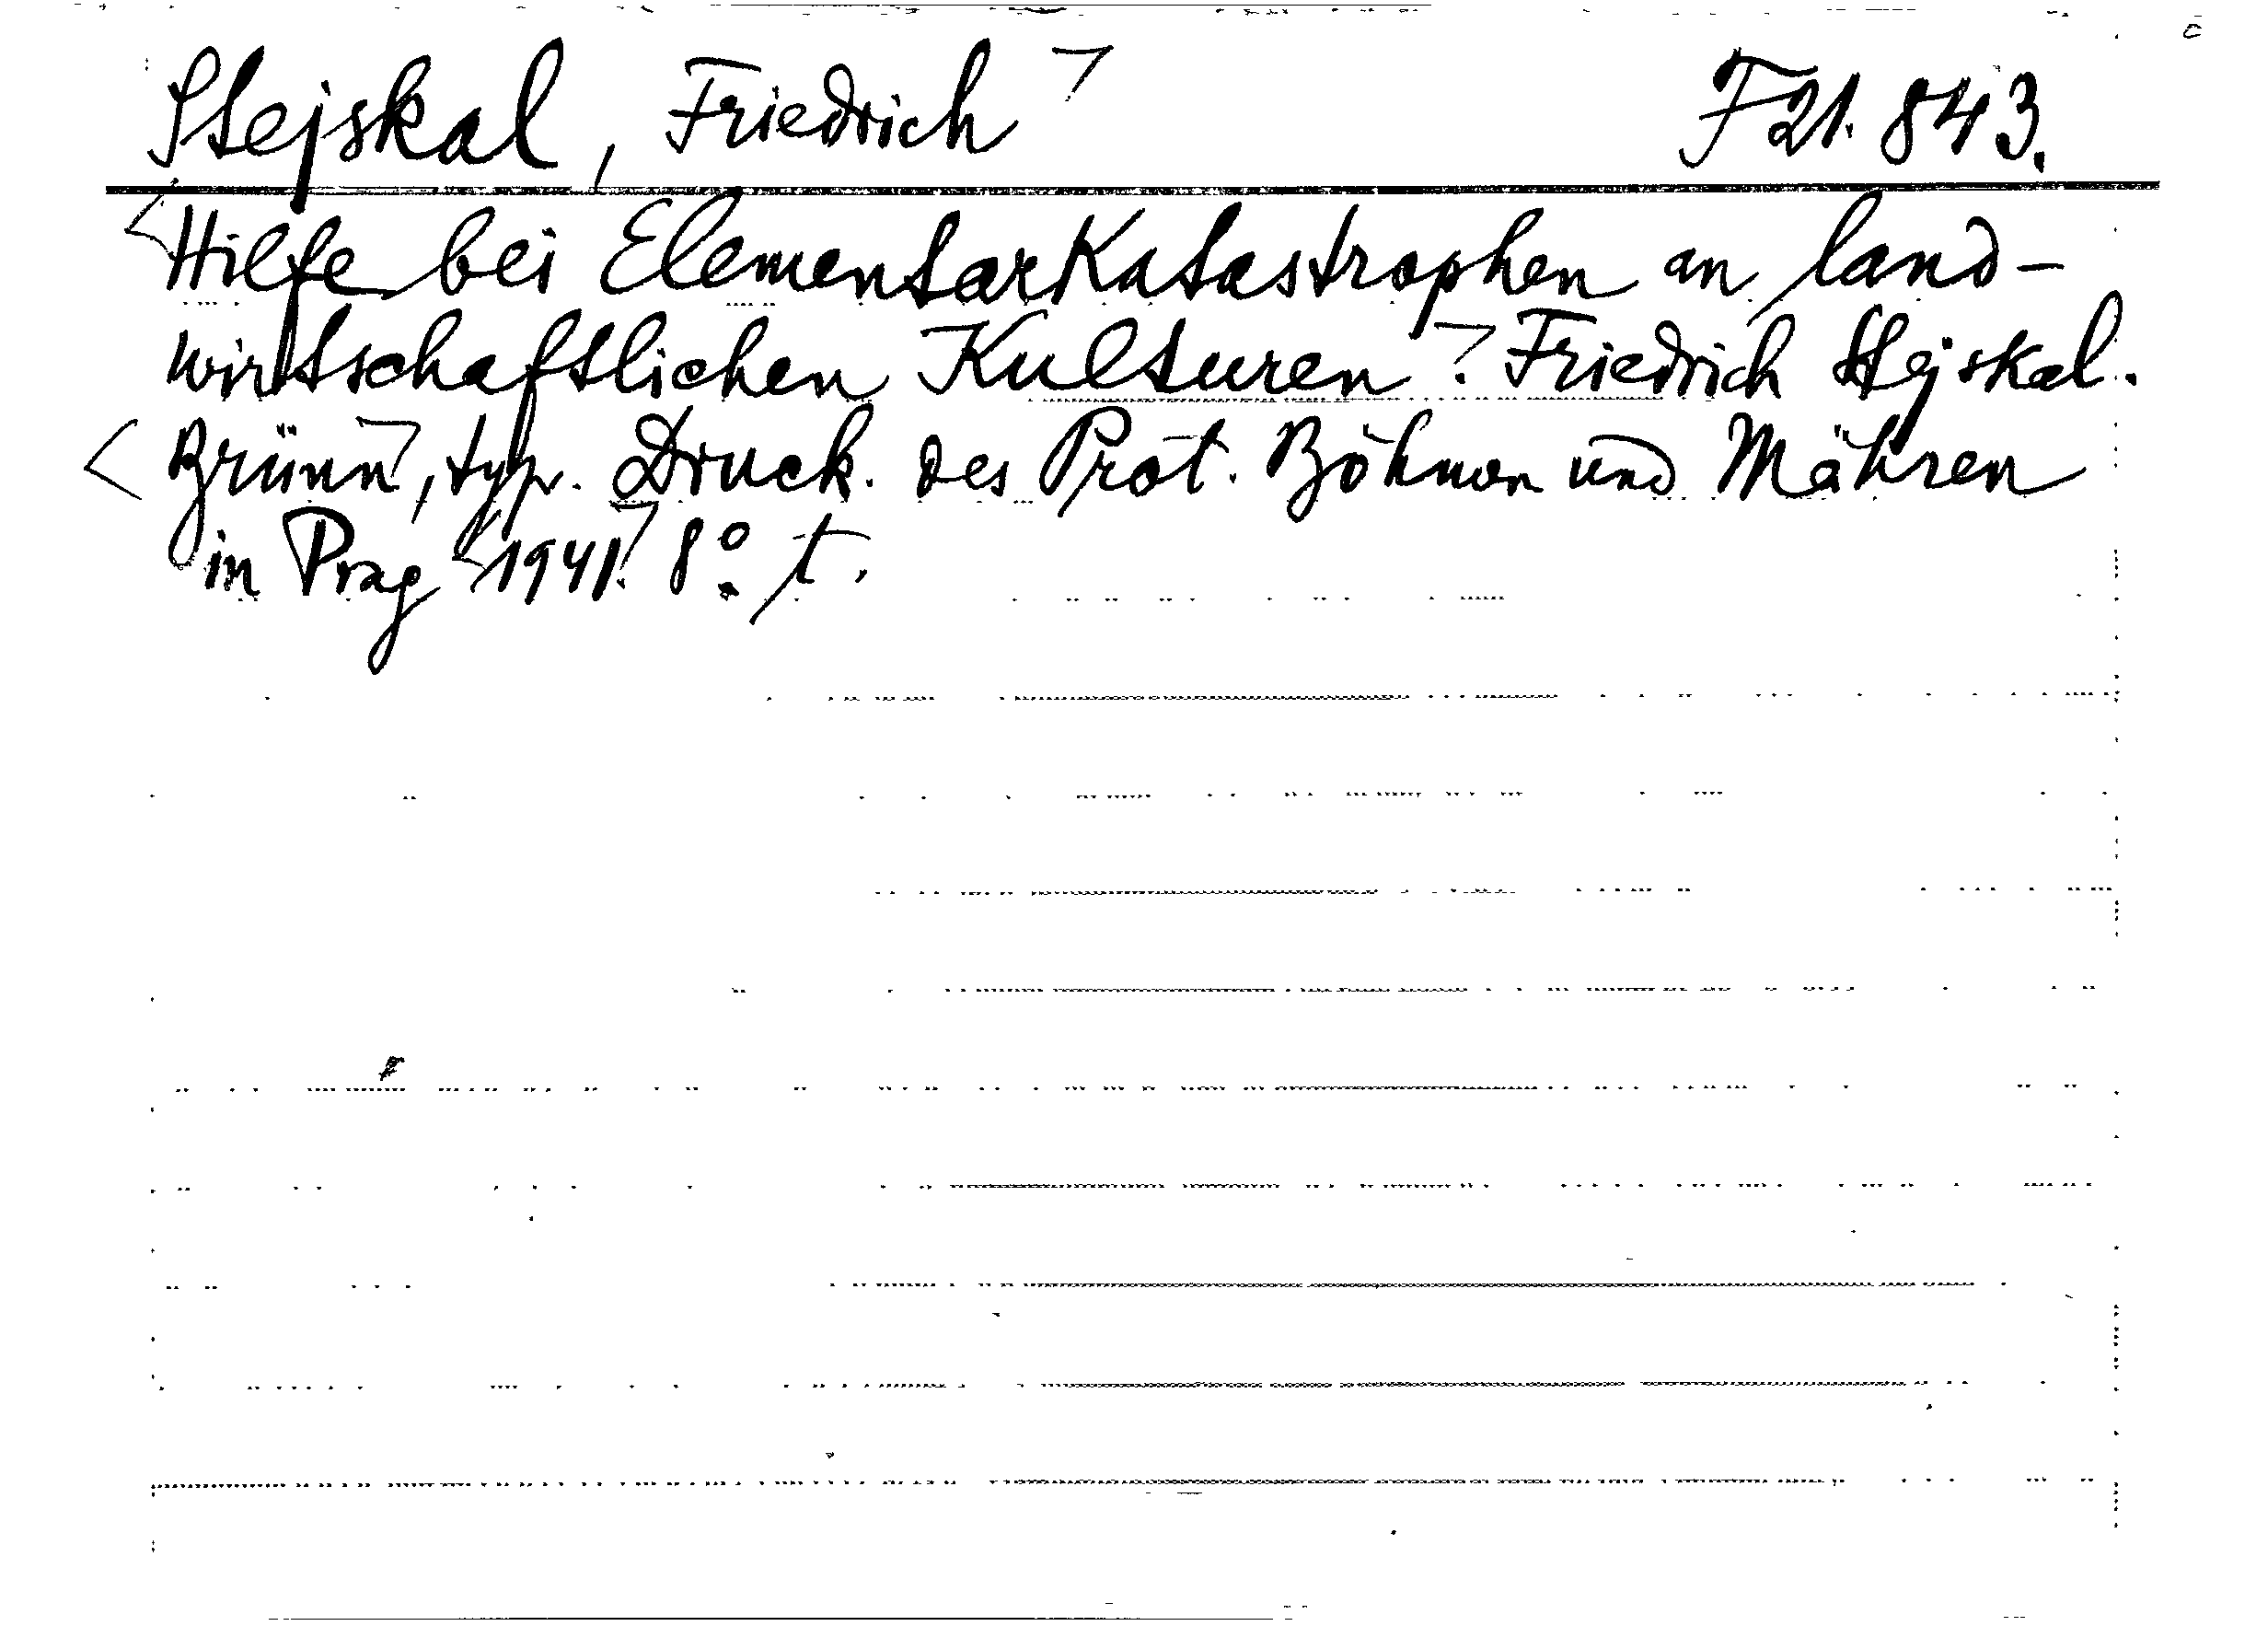 Stejskal, Friedrich F 21.843.
Hilfe bei Elementarkatastrophen an land-
wirtschaftlichen Kulturen. Friedrich Stejskal.
Brünn, typ. Druck. des Prot. Böhmen und Mähren
in Prag 1941. 8°. t.